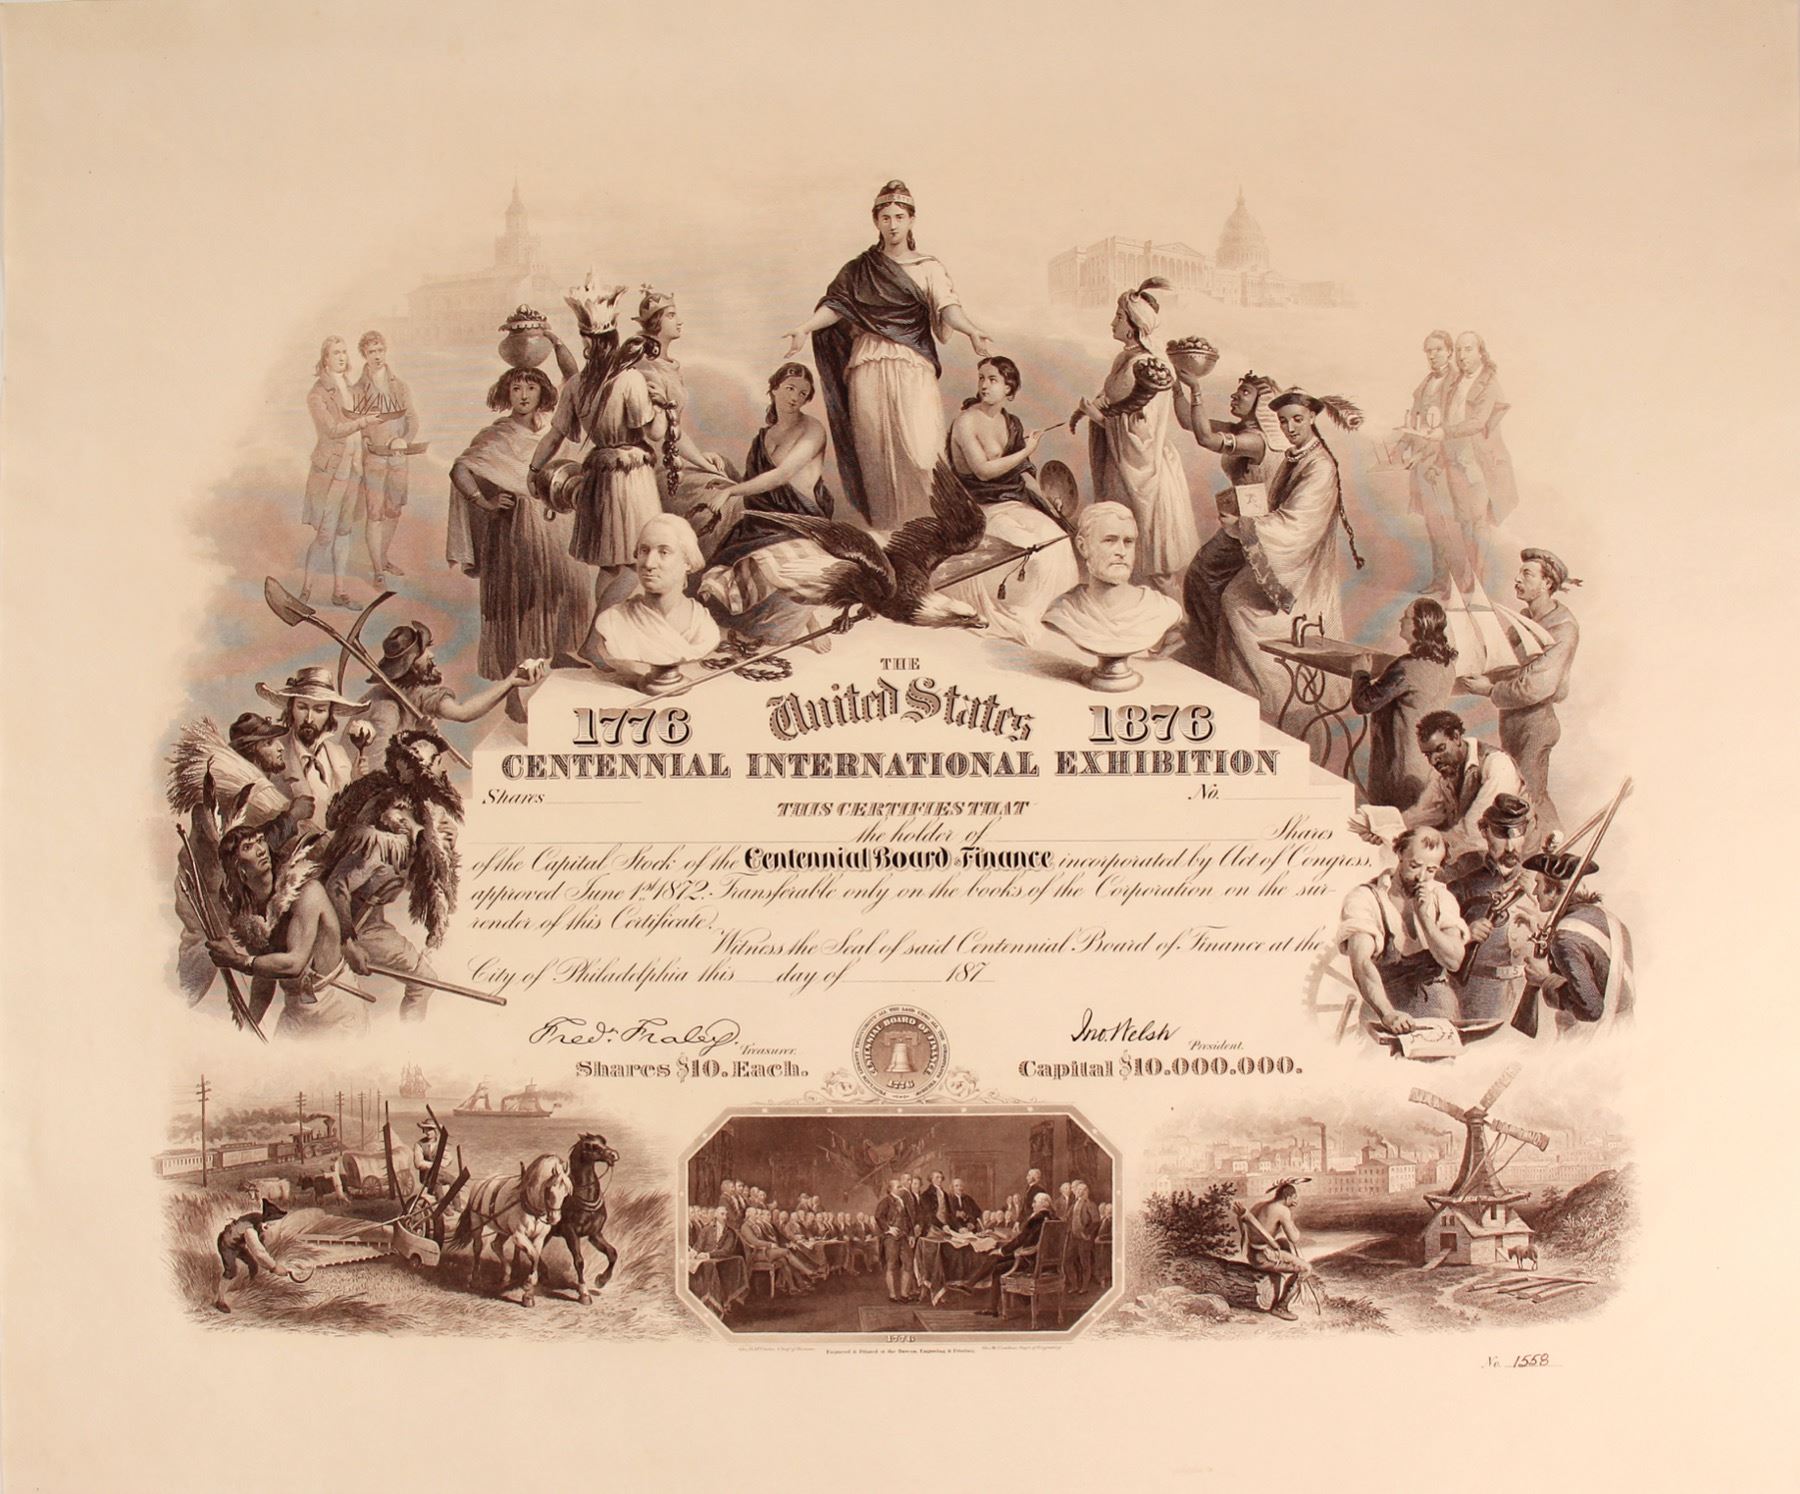 THE
United States
1776 1876
CENTENNIAL INTERNATIONAL EXHIBITION
Shares No.
THIS CERTIFIES THAT
the holder of Shares
of the Capital Stock of the Centennial Board of Finance incorporated by Act of Congress,
approved June 1st 1872. Transferable only on the books of the Corporation on the sur-
render of this Certificate.
Witness the Seal of said Centennial Board of Finance at the
City of Philadelphia this day of 187
Fredk. Fraley. Treasurer.
Jno. Welsh President.
Shares $10. Each.
Capital $10.000.000.
CENTENNIAL BOARD OF FINANCE
1776
U S
1776
Engraved & Printed at the Bureau, Engraving & Printing.
No. 1558